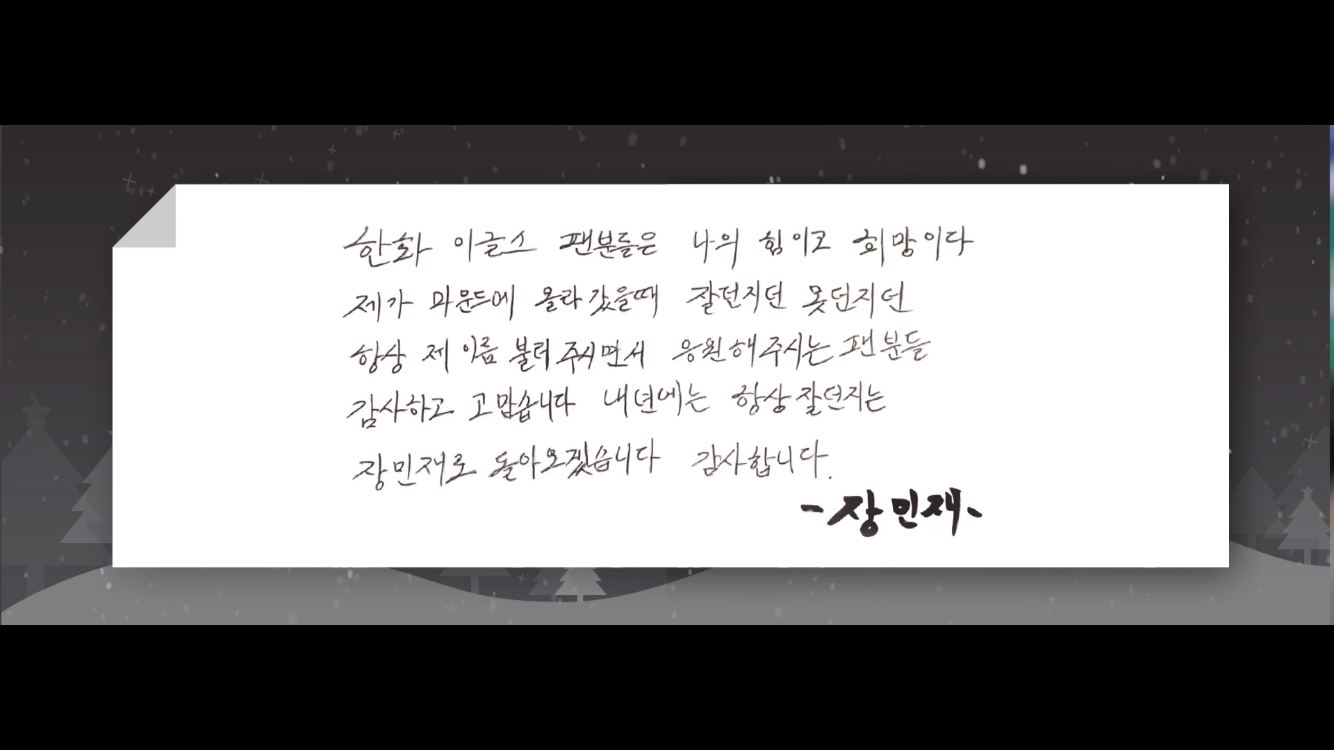 한화 이글스 팬분들은 나의 힘이고 희망이다
제가 마운드에 올라갔을때 잘던지던 못던지던
항상 제 이름 불러주시면서 응원해주시는 팬분들
감사하고 고맙습니다 내년에는 항상잘던지는
장민재로 돌아오겠습니다 감사합니다.
-장민재-